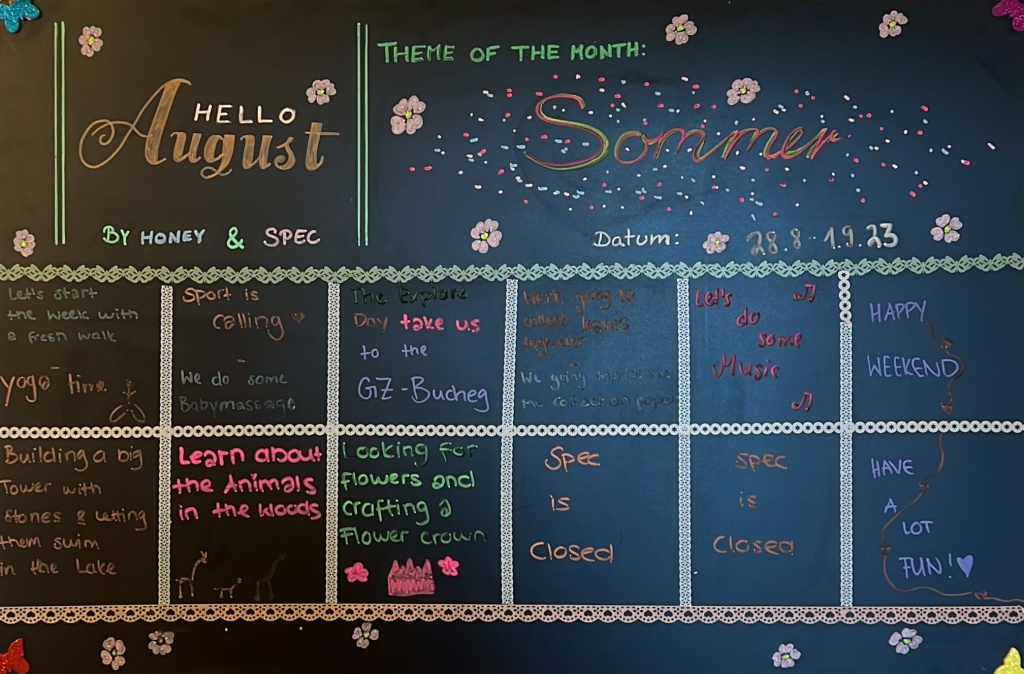 HELLO
August
BY HONEY & SPEC
THEME OF THE MONTH:
Sommer
Datum: 28.8 - 1.9.23
Let's start
the week with
a fresh walk
-
yoga time
Sport is
calling
-
We do some
Babymassage
The Explore
Day take us
to the
GZ-Bucheg
collect leaves
together
-
We going
the collection paper
Let's
do
some
Music
HAPPY
WEEKEND
Building a big
Tower with
Stones & letting
them swim
in the Lake
Learn about
the Animals
in the Woods
Looking for
flowers and
crafting a
Flower crown
Spec
is
Closed
spec
is
Closed
HAVE
A
LOT
FUN!